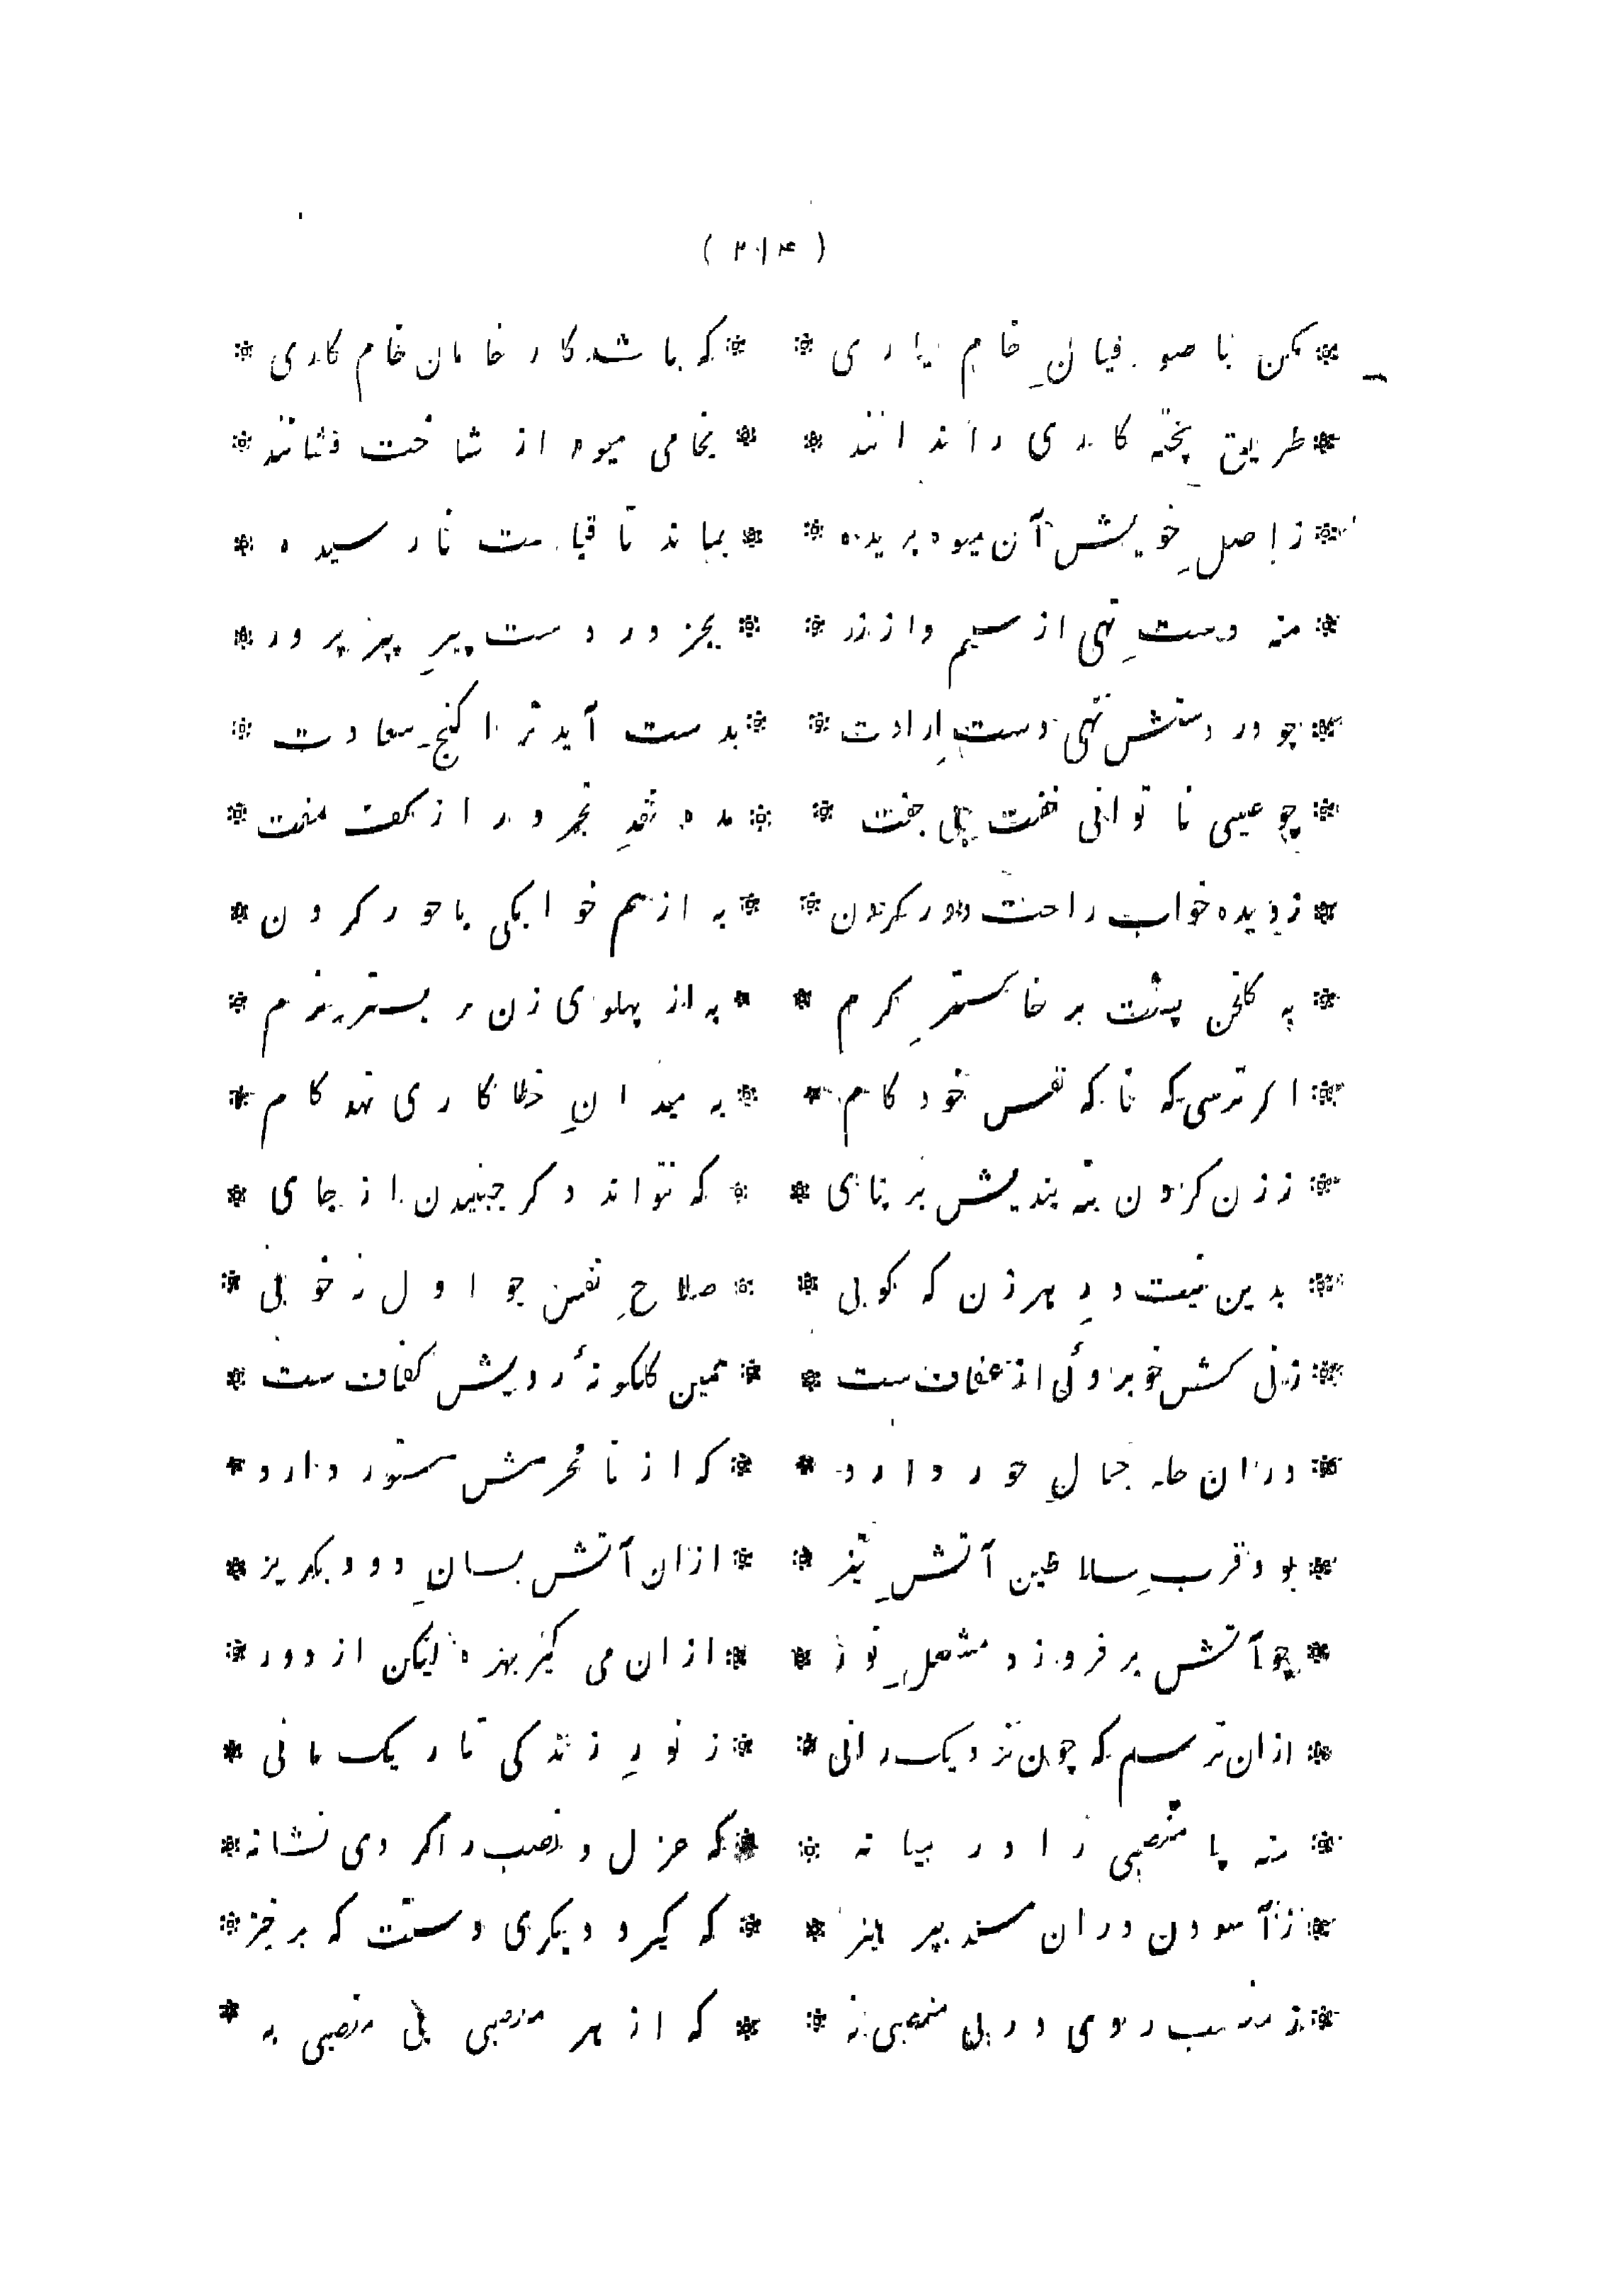 ( ۲۱۴ )
* مکن با صوفیانِ خام یاری * * که باشد کار خامان خام کاری *
* طریق پخته کاری را ندانند * * بخامی میوه از شاخت فشانند *
* ز اصلِ خویش آن میوه بریده * * بماند تا قیامت نارسیده *
* منه دستِ تهی از سیم و از زر * * بجز در دست پیرِ پیر پرور *
* چو در دستش نهی دستِ ارادت * * بدست آید ترا گنجِ سعادت *
* چو عیسی تا توانی خفت بی جفت * * مده نقدِ تجرد را از کف مفت *
* ز دیده خواب راحت دور کردن * * به از هم خوابکی با حور کردن *
* به گلخن پشت بر خاکسترِ گرم * * به از پهلوی زن بر بستر نرم *
* اگر ترسی که ناگه نفس خود کام * * به میدانِ خطاکاری نهد گام *
* ز زن کردن بنه بندیش بر پای * * که نتواند دگر جنبیدن از جای *
* بدین نیت درِ هر زن که کوبی * * صلاحِ نفس جو اول نه خوبی *
* زنی کش خوبروئی از عفاف ست * * همین گلگونهٔ رویش کفاف ست *
* دران حله جمالِ حور دارد * * که از نا محرمش مستور دارد *
* بود قربِ سلاطین آتشِ تیز * * ازان آتش بسانِ دود بگریز *
* چو آتش بر فروزد مشعلِ نور * * ازان می گیر بهره لیکن از دور *
* ازان ترسم که چون نزدیک رانی * * ز نورِ زندگی تاریک مانی *
* منه پا منصبی را در میانه * * که عزل و نصب را گردی نشانه *
* ز آسودن دران مسند بپرهیز * * که گیرد دیگری دستت که برخیز *
* ز منصب روی در بی منصبی نه * * که از هر منصبی بی منصبی به *